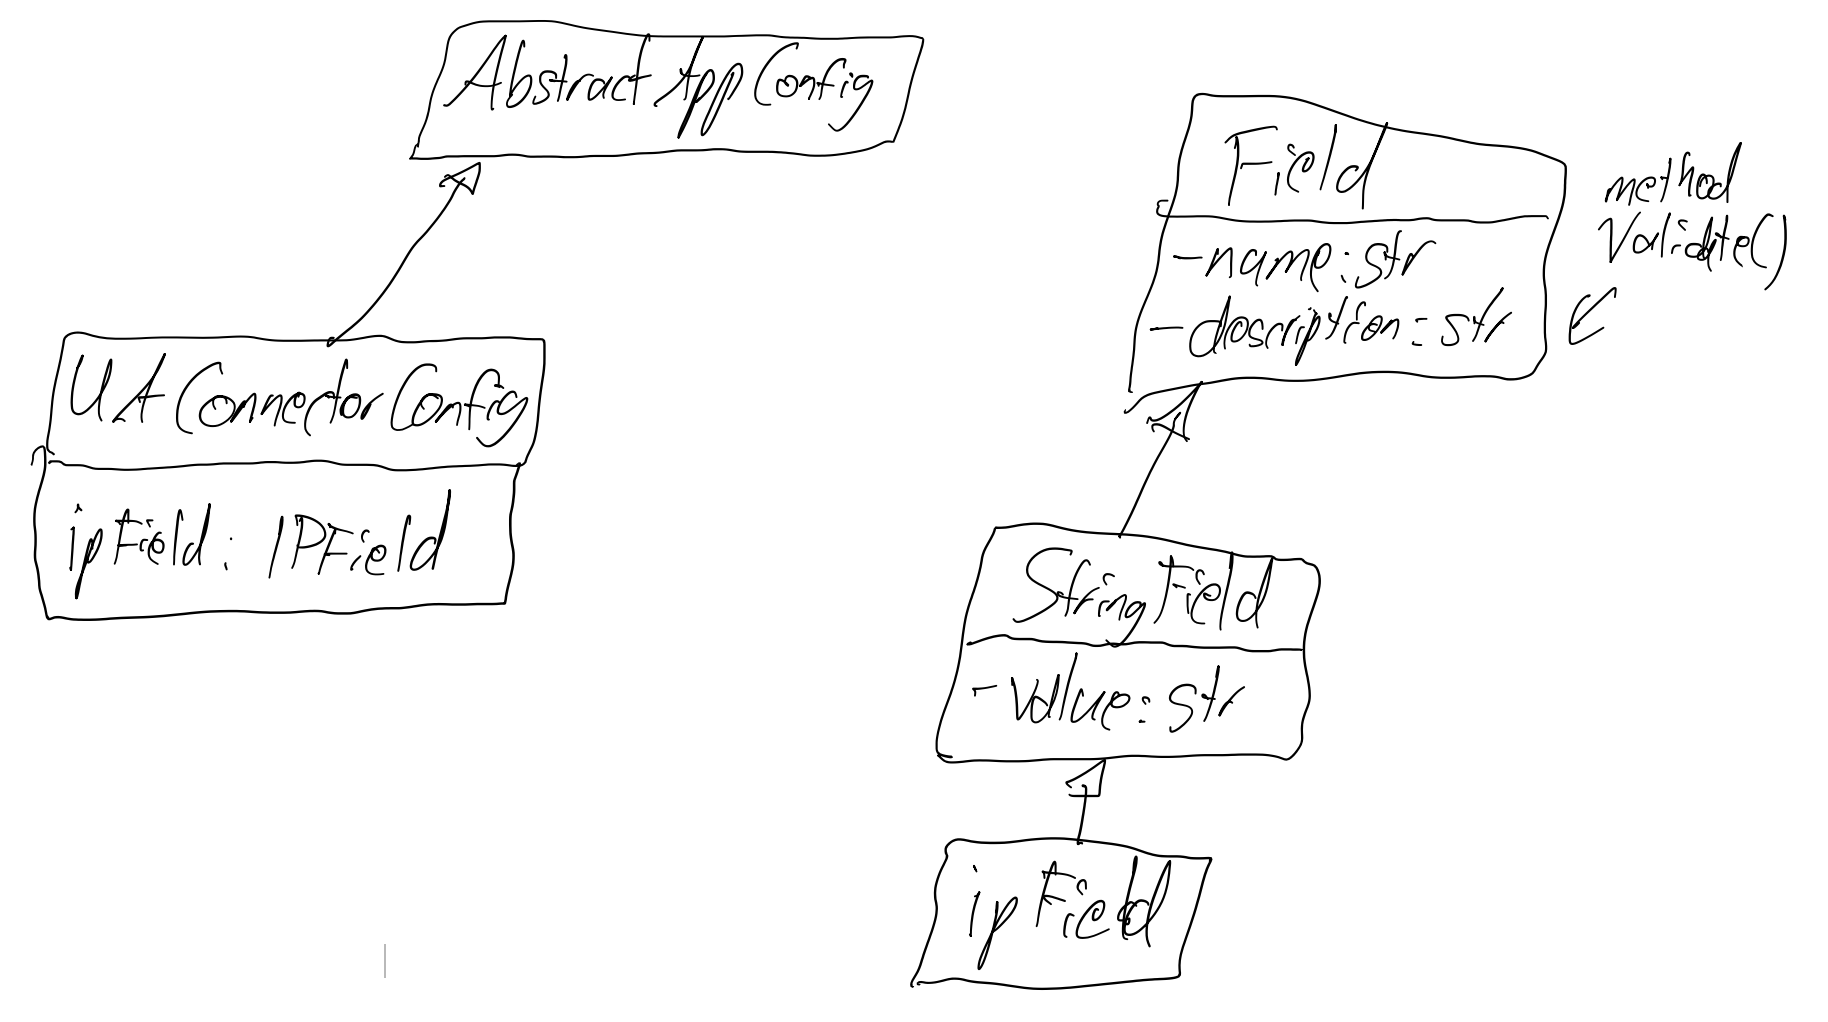 AbstractAppConfig
UAConnectorConfig
ipField: IPField
Field
-name:str
-description:str
method
Validate()
StringField
-value:str
ipField